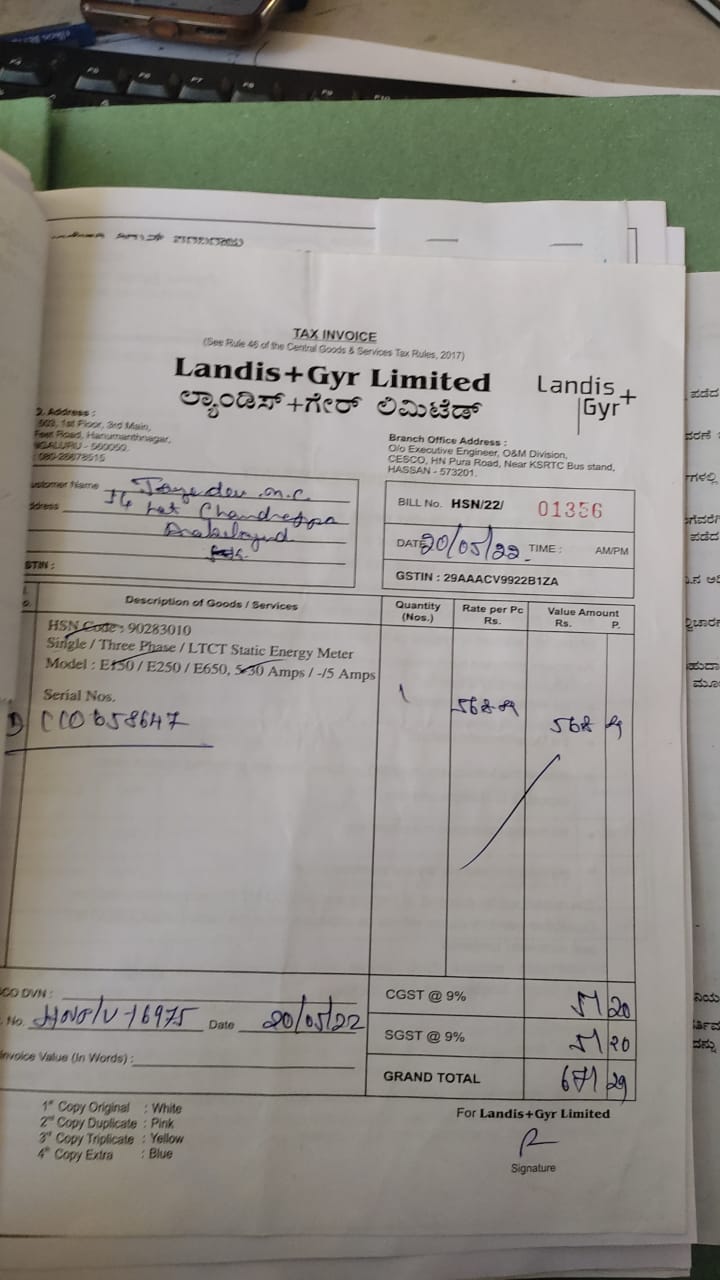 F5 F6 F7 F8 F9 F10
TAX INVOICE
(See Rule 46 of the Central Goods & Services Tax Rules, 2017)
Landis+Gyr Limited
ಲ್ಯಾಂಡಿಸ್+ಗೇರ್ ಲಿಮಿಟೆಡ್
Landis+
Gyr
. Address :
1st Floor, 3rd Main,
Feet Road, Hanumanthnagar,
NGALURU -
: 080-26678515
Branch Office Address :
O/o Executive Engineer, O&M Division,
CESCO, HN Pura Road, Near KSRTC Bus stand,
HASSAN - 573201.
ustomer Name Jayadev .M.C.
ddress
Late Chandrappa
STIN :
BILL No. HSN/22/ 01356
DATE 20/05/22 TIME : AM/PM
GSTIN : 29AAACV9922B1ZA
Description of Goods / Services
Quantity (Nos.)
Rate per Pc Rs.
Value Amount Rs. P.
HSN Code : 90283010
Single / Three Phase / LTCT Static Energy Meter
Model : E150 / E250 / E650, 5-30 Amps / -/5 Amps
Serial Nos.
1
568
568
CO DVN :
. No. Date 20/05/22
nvoice Value (In Words) :
CGST @ 9% 51 20
SGST @ 9% 51 20
GRAND TOTAL 671 29
1st Copy Original : White
2nd Copy Duplicate : Pink
3rd Copy Triplicate : Yellow
4th Copy Extra : Blue
For Landis+Gyr Limited
Signature